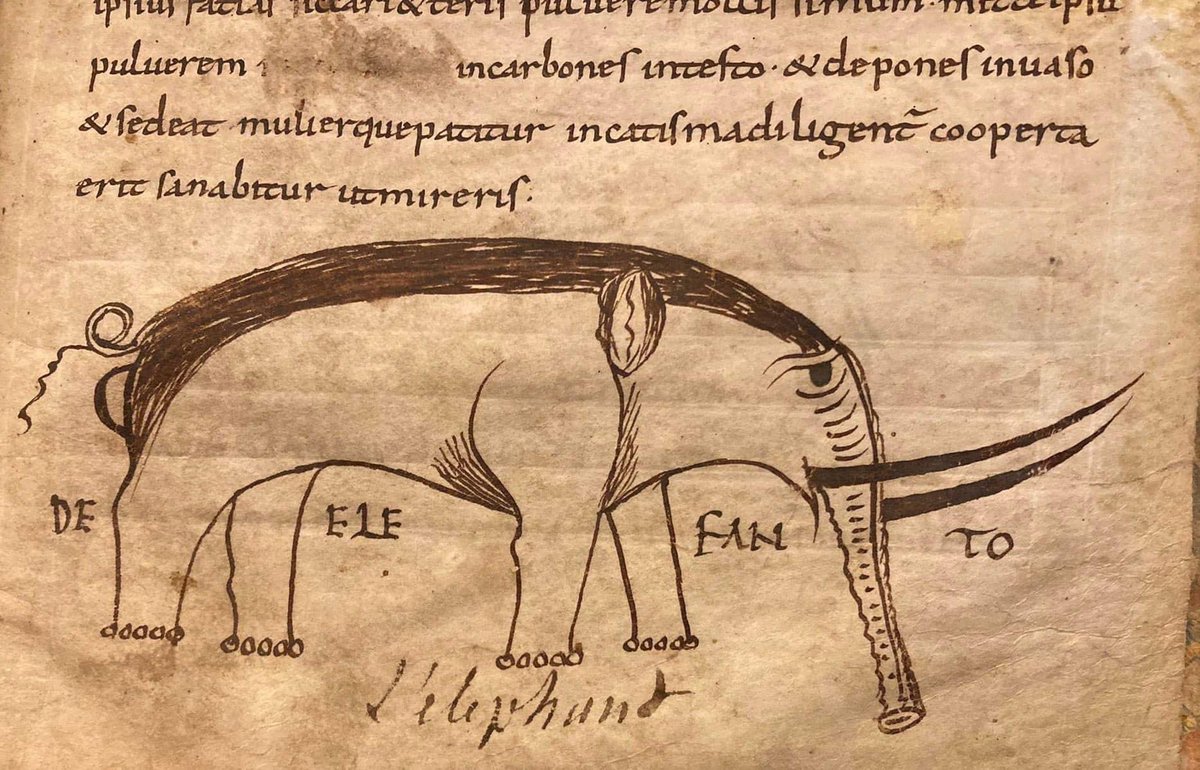 ipsius fatias siccari & teris puluerem mollissimum · mitte ipsu
puluerem incarbones intesto · & depones inuaso
& sedeat mulierquepatitur incatismadiligent̄ cooperta
erit sanabitur utmireris ·
DE ELE FAN TO
L'éléphant